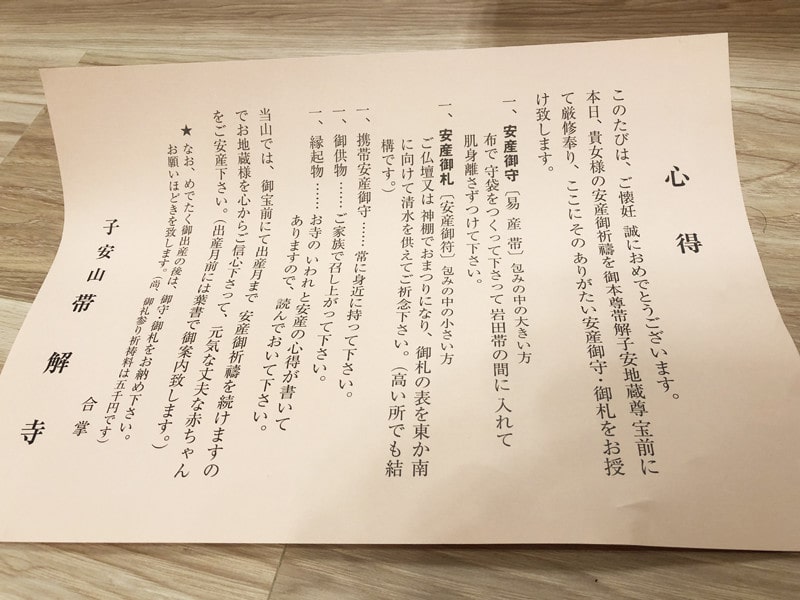 心得
このたびは、ご懐妊 誠におめでとうございます。
本日、貴女様の安産御祈禱を御本尊帯解子安地蔵尊宝前に
て厳修奉り、ここにその ありがたい安産御守・御札をお授
け致します。
一、安産御守〔易産帯〕包みの中の大きい方
布で 守袋をつくって下さって 岩田帯の間に 入れて
肌身離さずつけて下さい。
一、安産御札〔安産御符〕包みの中の小さい方
ご仏壇又は 神棚でおまつりになり、御札の表を東か南
に向けて清水を供えてご祈念下さい。(高い所でも結
構です。)
一、携帯安産御守……常に身近に持って下さい。
一、御供物……ご家族で召し上がって下さい。
一、縁起物……お寺の いわれ と安産の心得が書いて
ありますので、読んでおいて下さい。
当山では、御宝前にて出産月まで 安産御祈禱を続けますの
でお地蔵様を心からご信心下さって、元気な丈夫な赤ちゃん
をご安産下さい。(出産月前には葉書で御案内致します。)
★ なお、めでたく御出産の後は、御守・御札をお納め下さい。
お願いほどきを致します。(尚、御礼参り祈祷料は五千円です)
合掌
子安山帯解寺